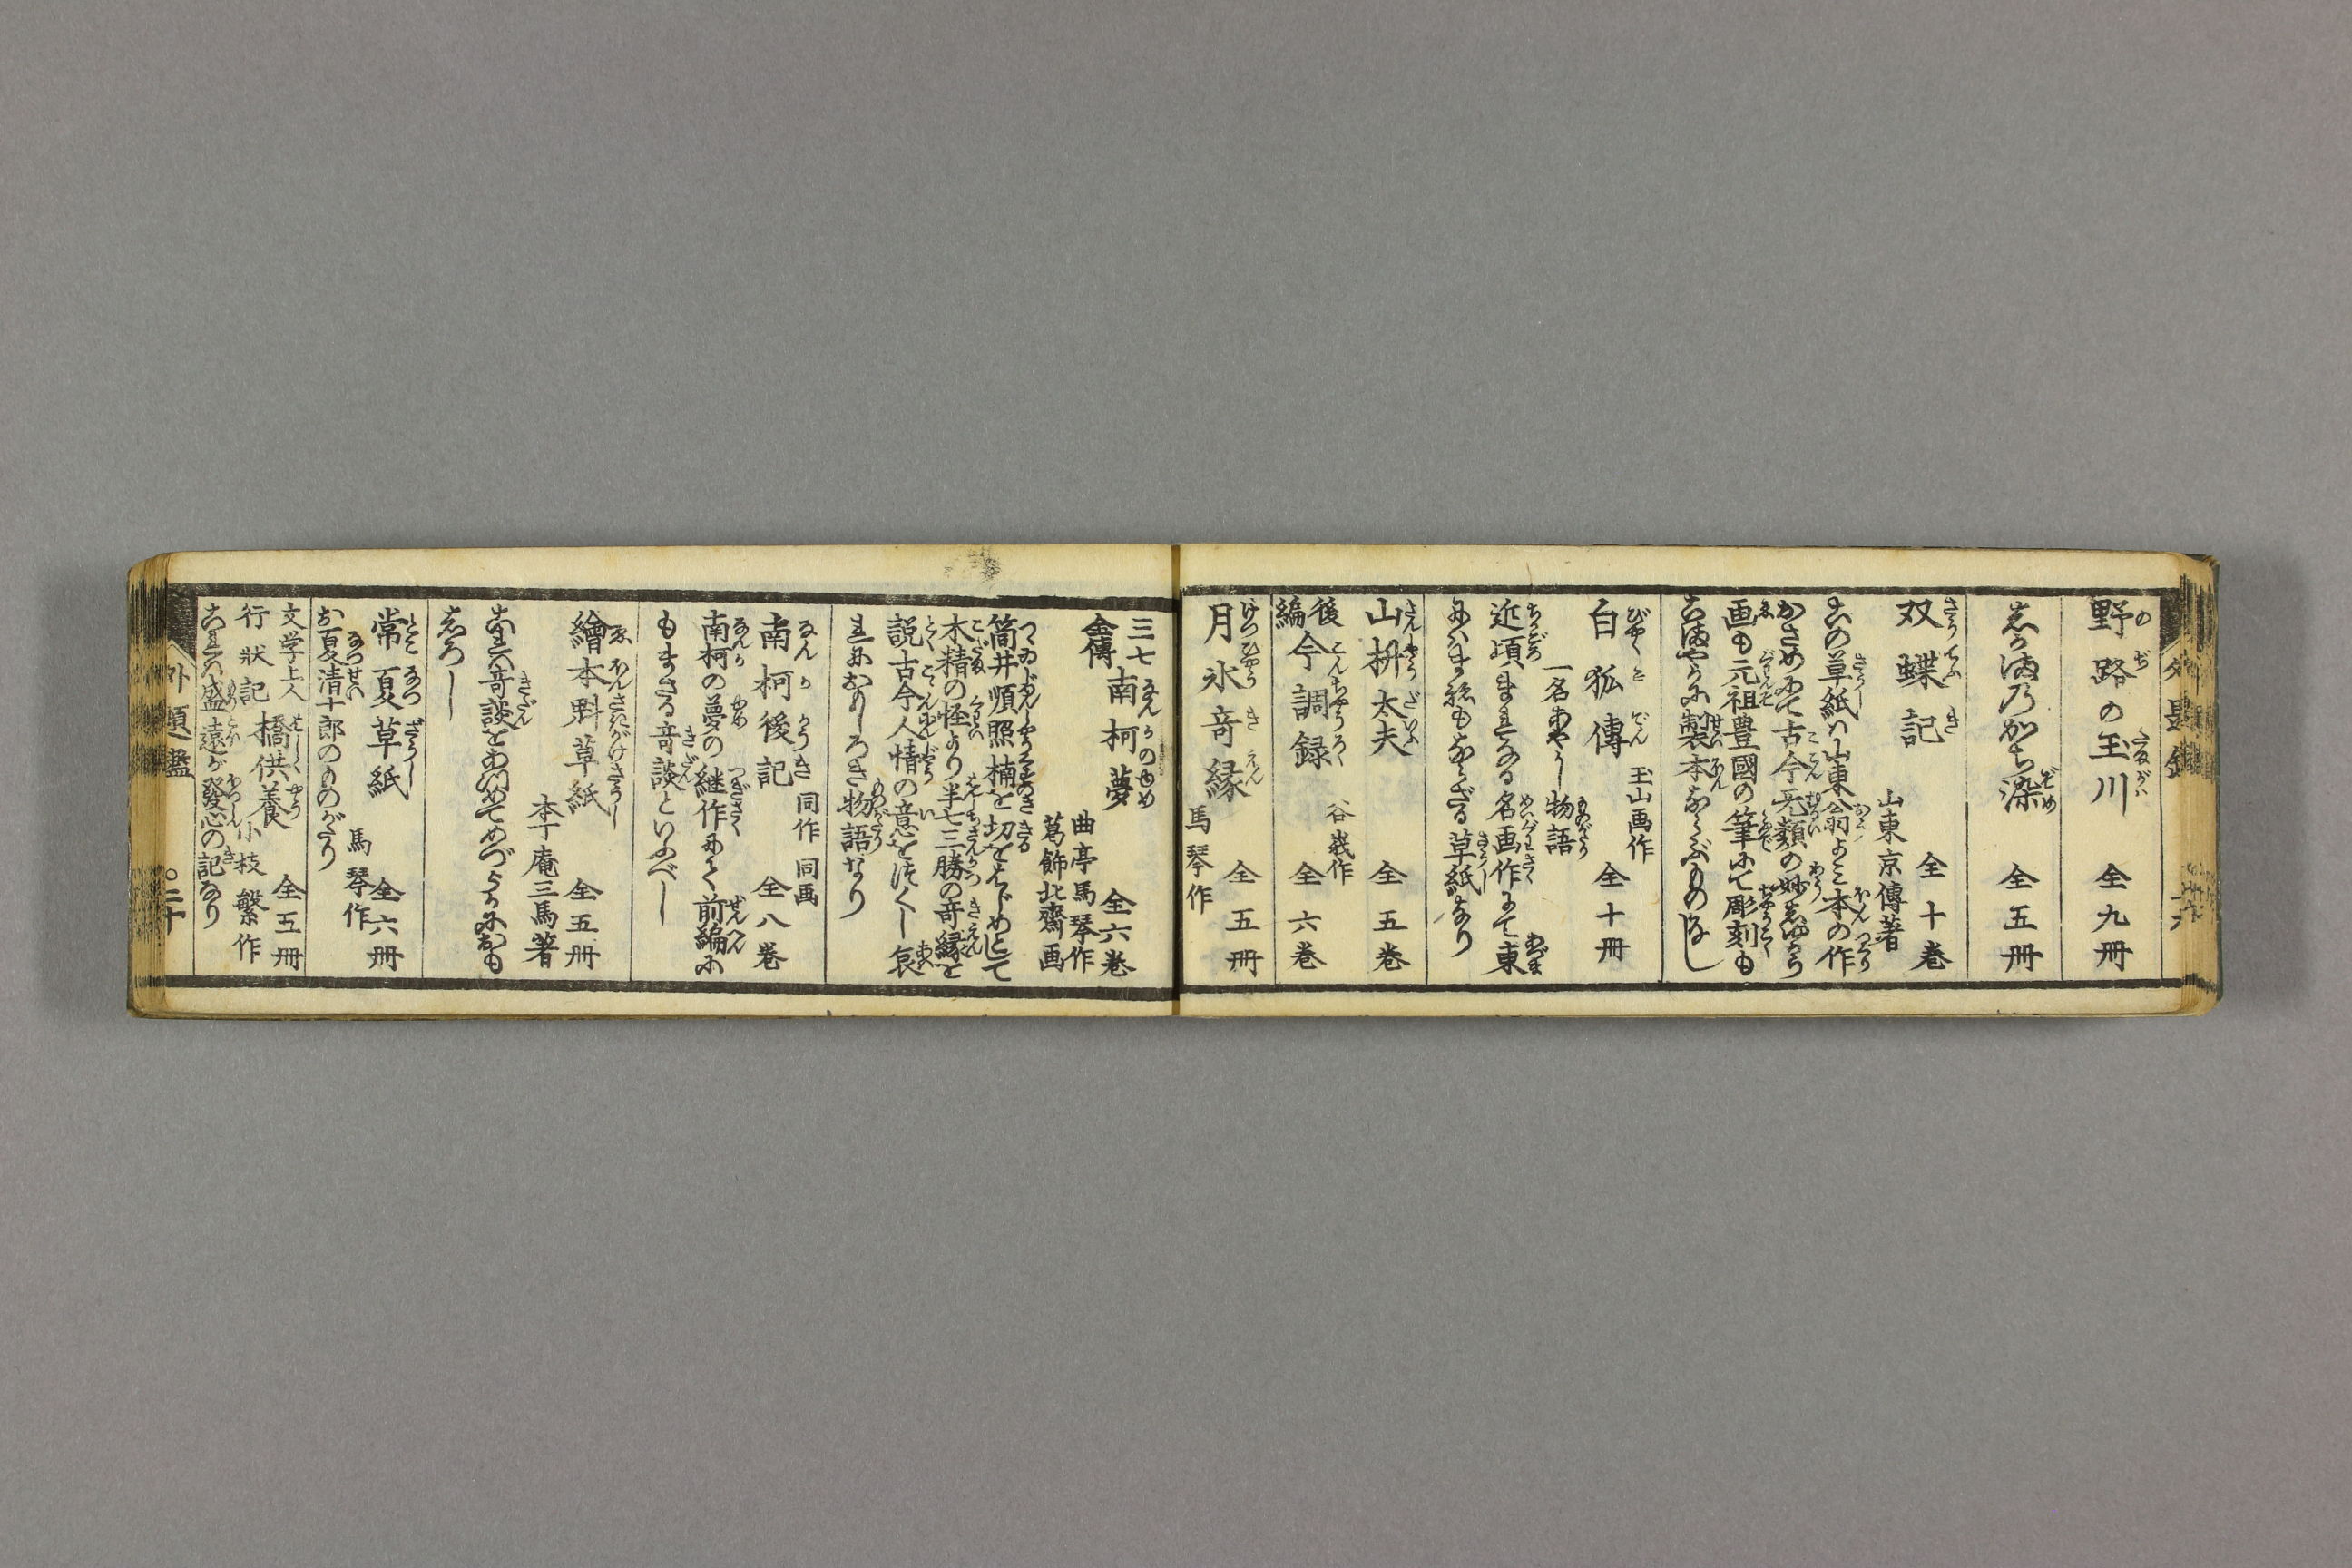 野路の玉川 全九冊
志かまのかち染 全五冊
双蝶記 全十巻
山東京傳著
この草紙ハ山東翁よみ本の作
おさめにて古今无類の妙しゆかう
画も元祖豊國の筆にて彫刻も
こまやかに製本ならぶものなし
白狐傳 全十冊
玉山画作
一名あやかし物語
近頃まれなる名画作にて東
にハまれもならざる草紙なり
山枡太夫 全五巻
後編 今調録 全六巻
谷峩作
月氷奇縁 全五冊
馬琴作
三七全傳 南柯夢 全六巻
曲亭馬琴作
葛飾北齋画
筒井順照楠を切をはじめとして
木精の怪より半七三勝の奇縁を
説古今人情の意をつくし哀
れにおもしろき物語なり
南柯後記 全八巻
同作 同画
南柯の夢の継作にして前編に
もまさる竒談といふべし
繪本㪽草紙 全五冊
本丁庵三馬著
これハ奇談をあつめてめづらかにおも
しろし
常夏草紙 全六冊
馬琴作
お夏清十郎のものがたり
文学上人行状記 橋供養 全五冊
小枝繁作
これハ盛遠が發心の記なり
外題鑑 〇二十